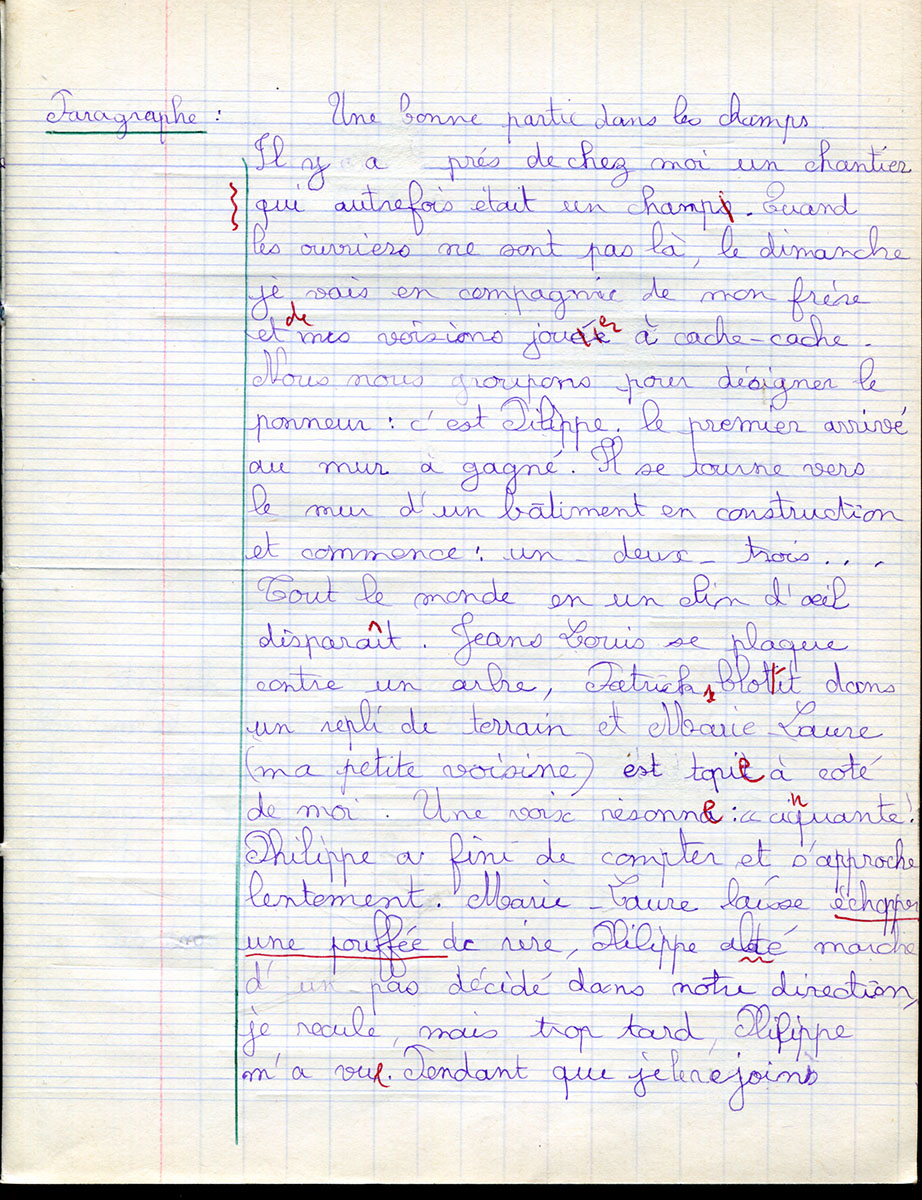 Paragraphe : Une bonne partie dans les champs
Il y a prés de chez moi un chantier
qui autrefois était un champ. Quand
les ouvriers ne sont pas là, le dimanche
je vais en compagnie de mon frére
et de mes voisions jouer à cache-cache.
Nous nous groupons pour désigner le
ponneur : c'est Pilippe. le premier arrivé
au mur à gagné. Il se tourne vers
le mur d'un bâtiment en construction
et commence : un - deux - trois...
Tout le monde en un clin d'œil
disparaît. Jeans Louis se plaque
contre un arbre, Patrick, blottit dans
un repli de terrain et Marie Laure
(ma petite voisine) est tapie à coté
de moi. Une voix résonne : " cinquante !
Philippe a fini de compter et s'approche
lentement. Marie-Laure laisse échapper
une pouffée de rire, Philippe marche
d'un pas décidé dans notre direction,
je recule, mais trop tard, Philippe
m'a vue. Pendant que je le rejoins